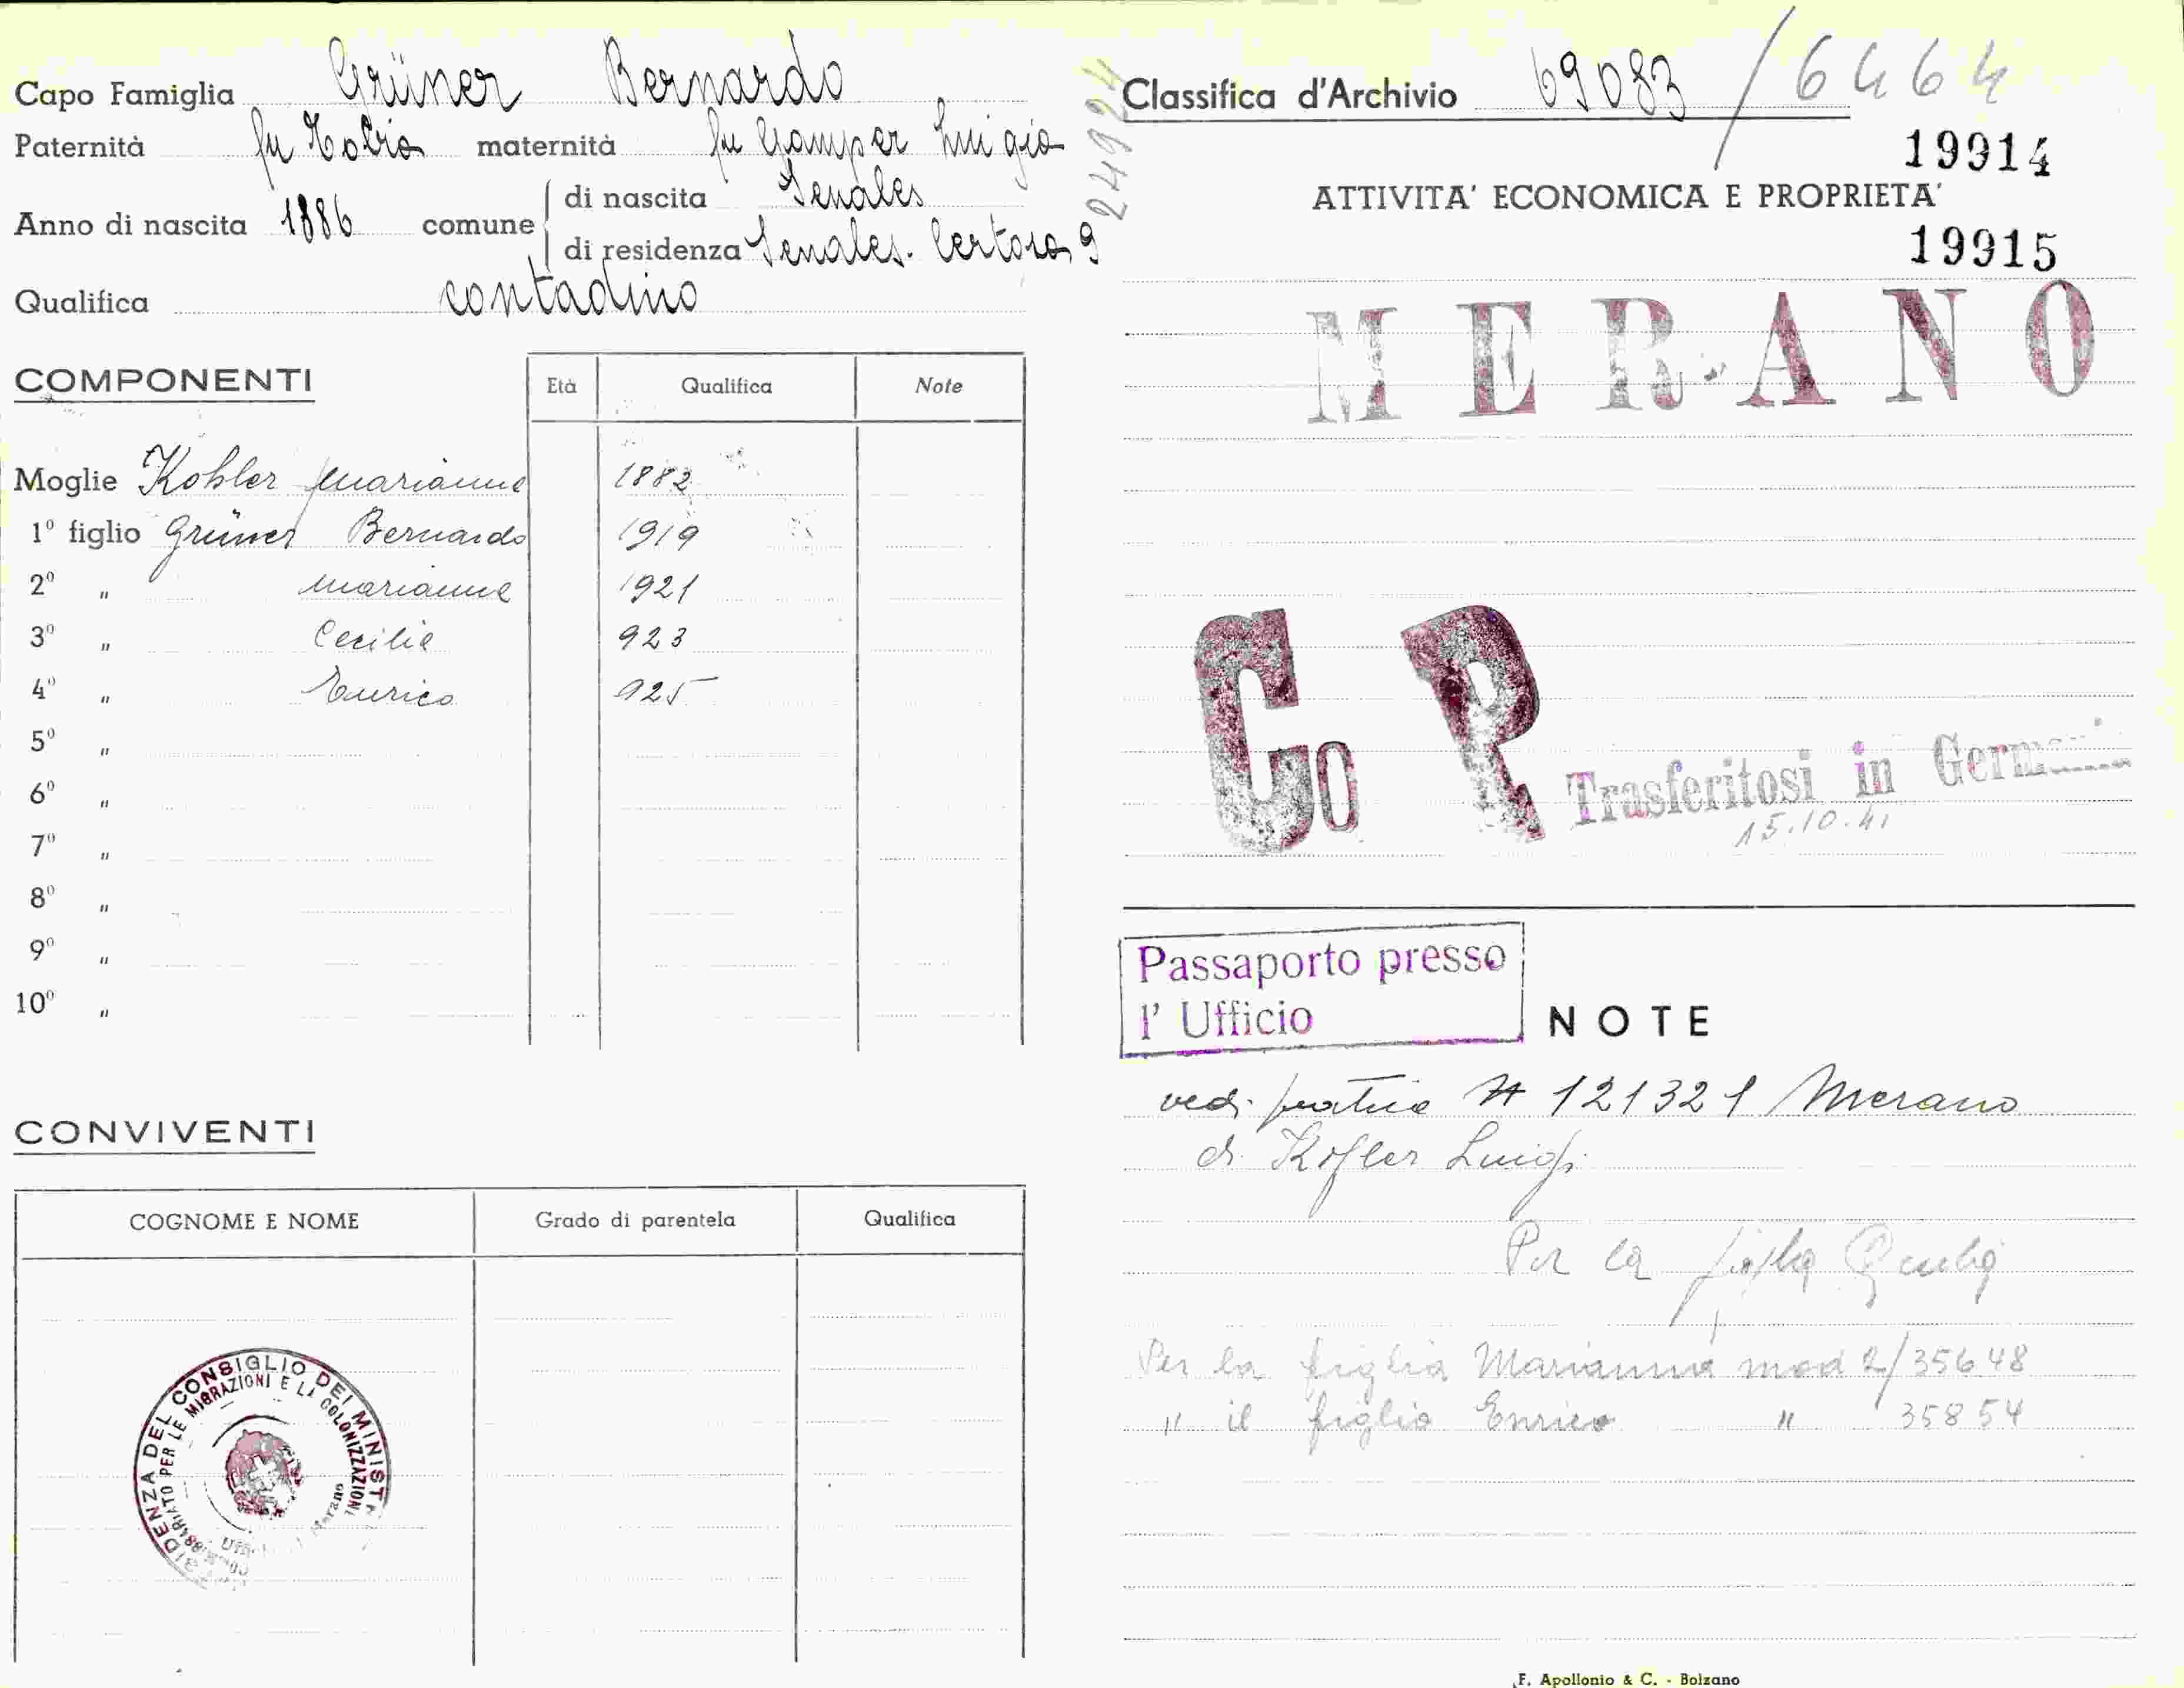 Capo Famiglia Grüner Bernardo
Paternità fu Tobia maternità fu Gamper Luigia
Anno di nascita 1886 comune di nascita Senales
di residenza Senales. Certosa 9
Qualifica contadino
COMPONENTI Età Qualifica Note
Moglie Kohler Marianne 1882
1º figlio Grüner Bernardo 1919
2º " Marianne 1921
3º " Cecilie 923
4º " Enrico 925
5º "
6º "
7º "
8º "
9º "
10º "
CONVIVENTI
COGNOME E NOME Grado di parentela Qualifica
PRESIDENZA DEL CONSIGLIO DEI MINISTRI
COMMISSARIATO PER LE MIGRAZIONI E LA COLONIZZAZIONE
Merano
244924
Classifica d'Archivio 69083 / 6464
19914
ATTIVITA' ECONOMICA E PROPRIETA'
19915
MERANO
Co P
Trasferitosi in Germania
15.10.41
Passaporto presso
l' Ufficio
NOTE
vedi pratica N 121321 Merano
di Kofler Luigi
Per la figlia
Per la figlia Marianna mod 2/35648
" il figlio Enrico " 35854
F. Apollonio & C. - Bolzano